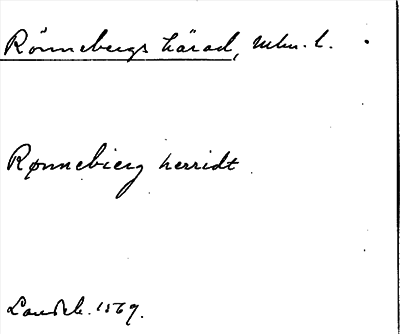 Rönnebergs härad, Mlm. l.
Rønnebierg herridt
Landeb. 1569.